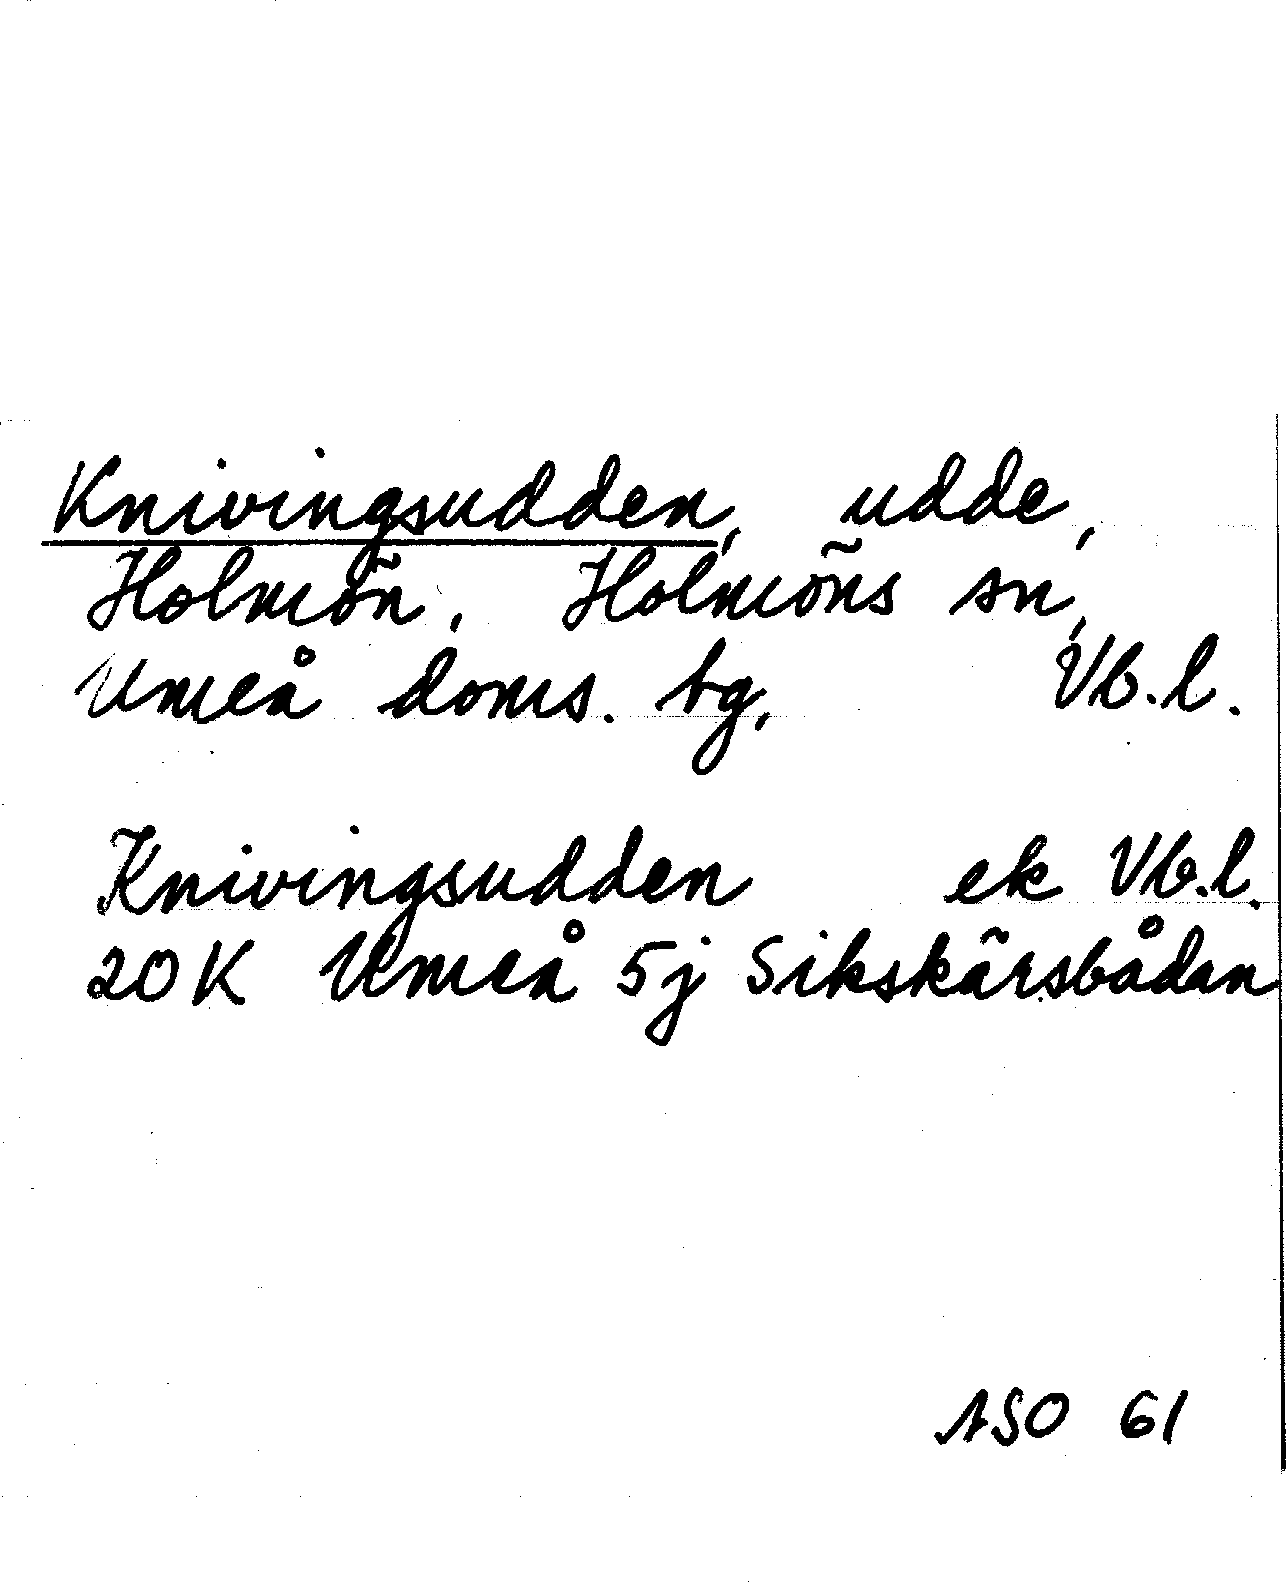 Knivingsudden, udde,
Holmön, Holmöns sn,
Umeå doms. tg, Vb.l.
Knivingsudden ek Vb.l.
20K Umeå 5j Sikskärsbådan
ASO 61